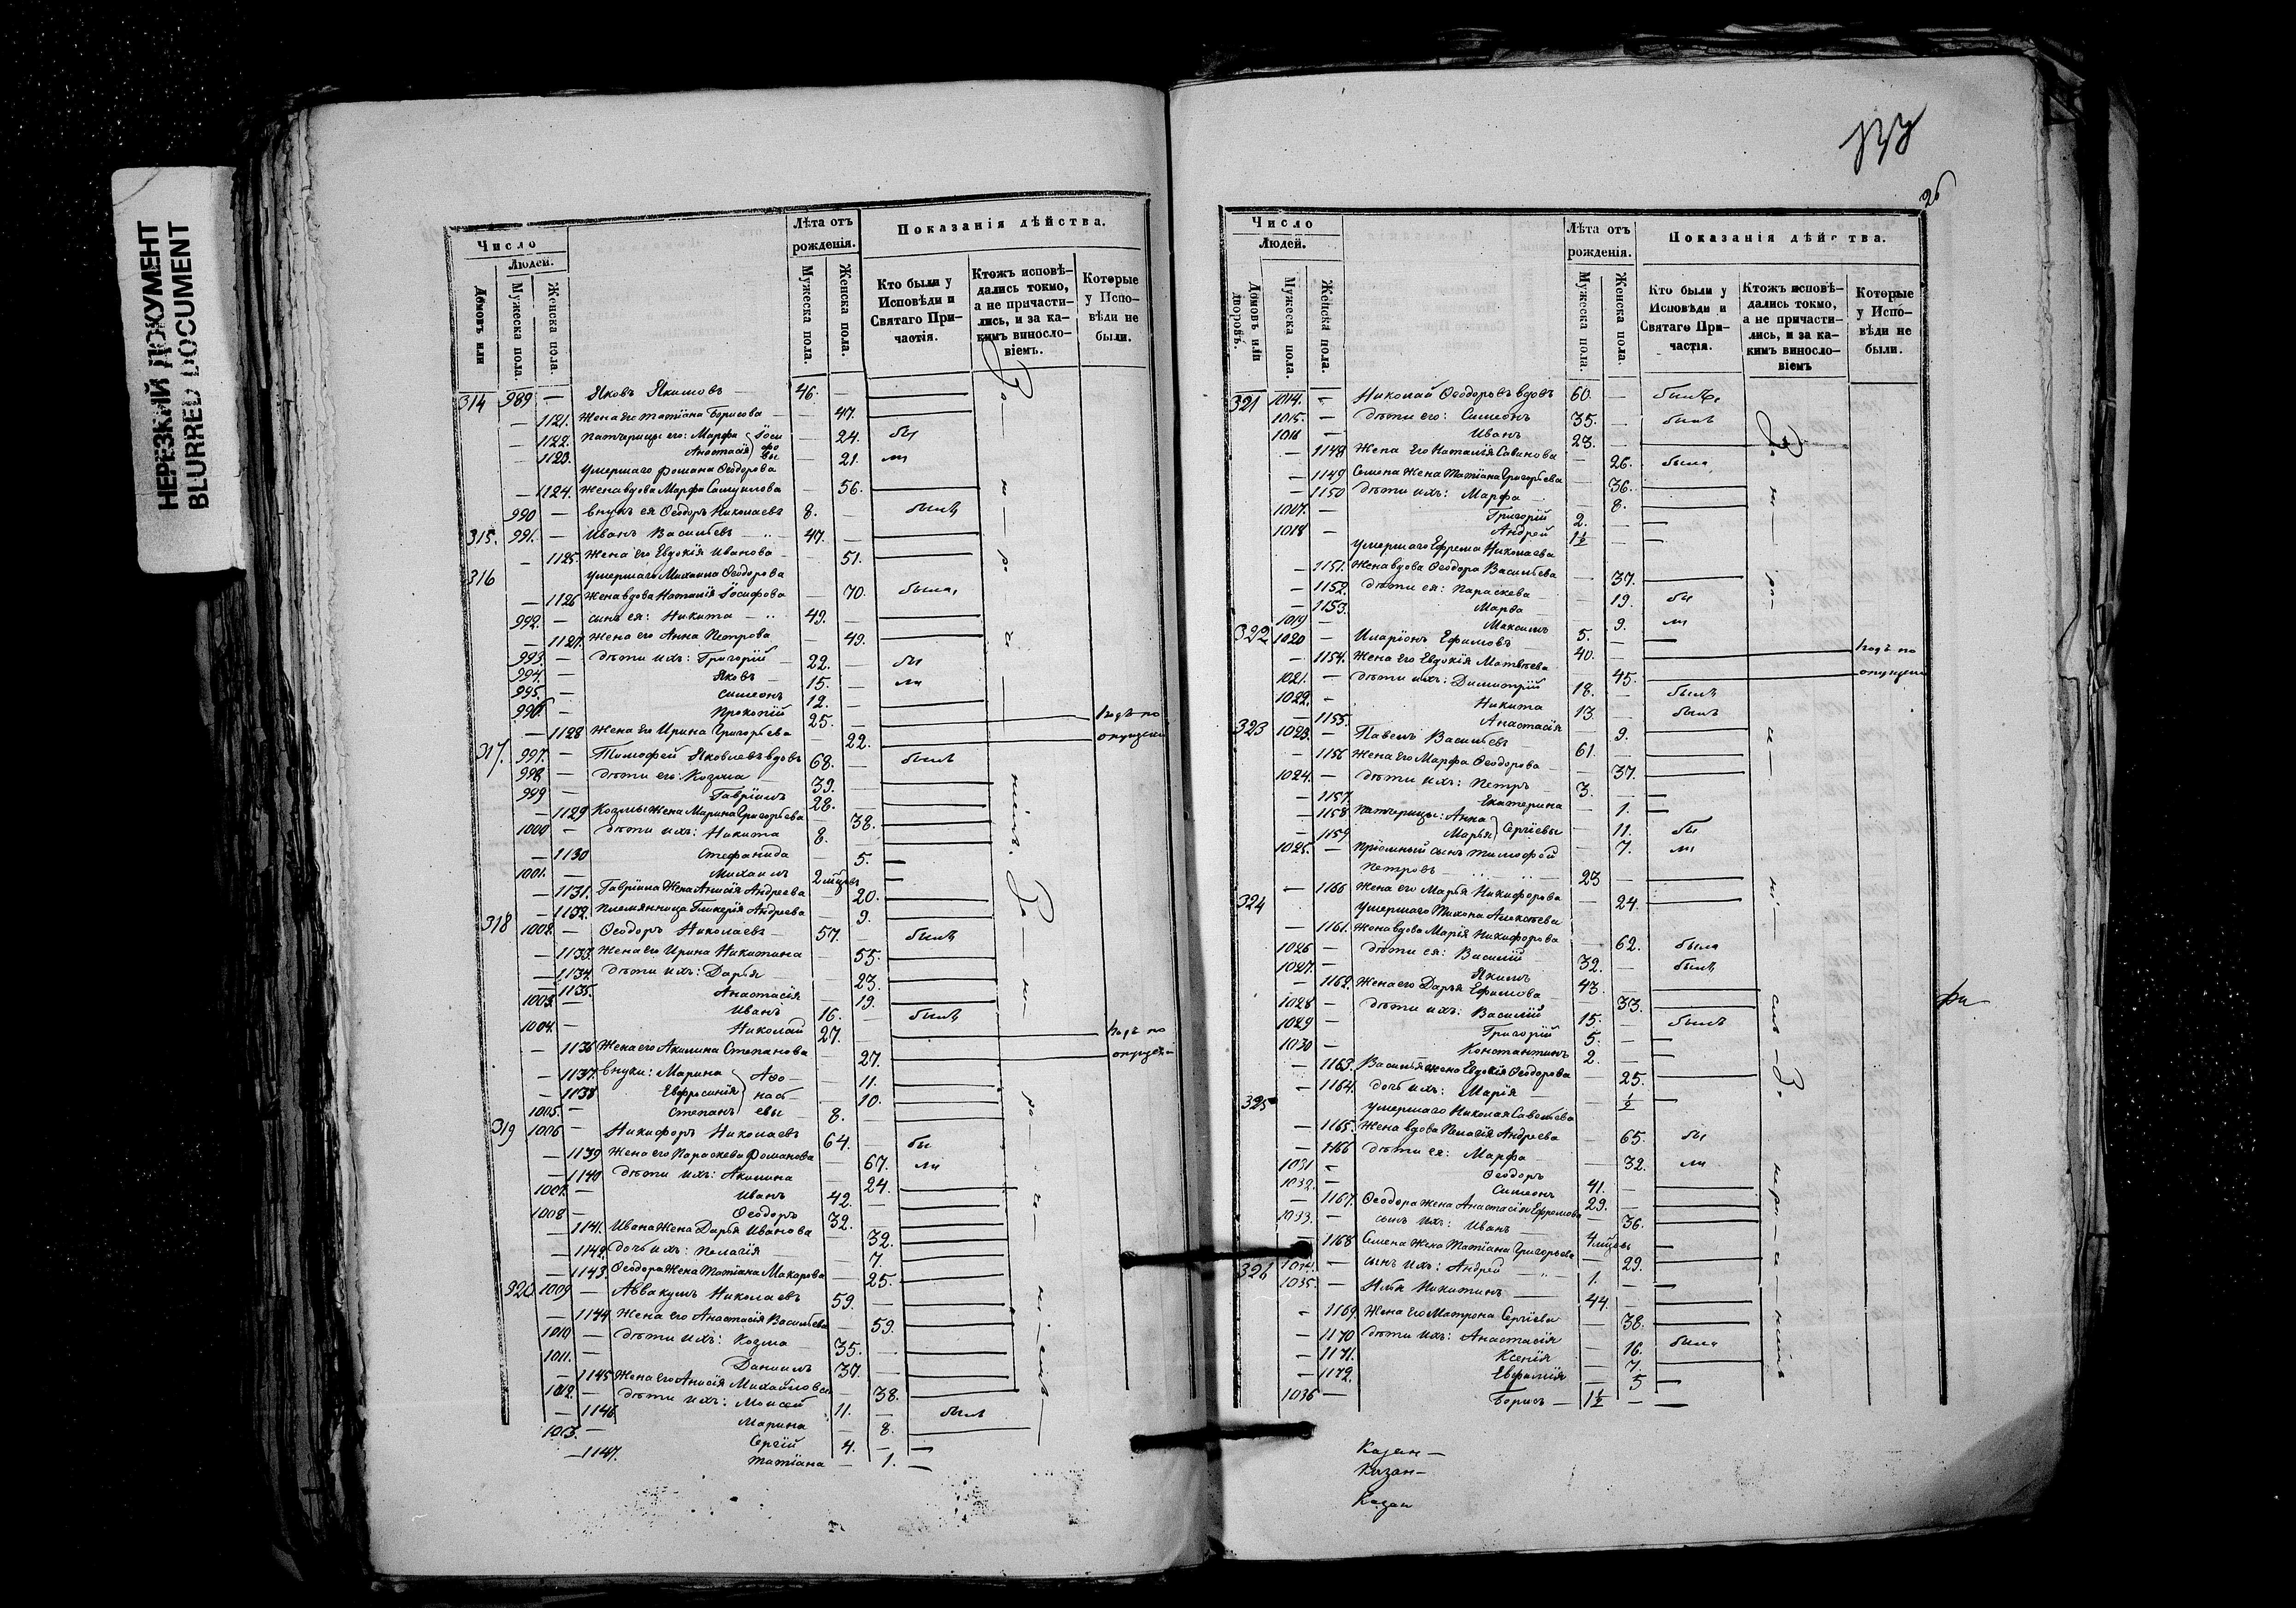 НЕРЕЗКИЙ ДОКУМЕНТ
BLURRED DOCUMENT
Число
Людей.
Домовъ или
Мужеска пола.
Женска пола.
Лѣта отъ рожденія.
Мужеска пола.
Женска пола.
Показанія дѣйства.
Кто были у Исповѣди и Святаго Причастія.
Ктожъ исповѣ-
дались токмо,
а не причасти-
лись, и за ка-
кимъ винос­ло-
віемъ.
Которые
у Испо-
вѣди не
были.
314 989 — Яковъ Якимовъ — 46. —
— 1121. Жена его Татіана Борисова — 47.
— 1122. Патчерицы его: Марфа Іоси — 24. бы
— 1123. Анастасія фо вы — 21. ли
Умершаго Романа Ѳеодорова
— 1124. Жена вдова Марфа Самуилова — 56.
990 — внукъ ея Ѳеодоръ Николаевъ 8. — былъ
315. 991. — Иванъ Васильевъ — 47. —
— 1125. Жена его Евдокія Иванова — 51.
316 Умершаго Михаила Ѳеодорова
— 1126 Жена вдова Наталія Іосифова — 70. была,
992. — сынъ ея: Никита — 49. —
— 1127. Жена его Анна Петрова — 49.
993. — дѣти ихъ: Григорій — 22. — бы
994. — Яковъ — 15. — ли
995. — Симеонъ 12. —
996. — Прокопій 25. — Къ по
— 1128 Жена его Ирина Григорьева 22. опущенію
317. 997. — Тимофей Яковлевъ вдовъ 68. — былъ
998. — дѣти его: Козма — 39. —
999 — Гавріилъ 28. —
— 1129 Козмы Жена Марина Григорьева — 38.
1000 — дѣти ихъ: Никита 8. —
— 1130 Стефанида — 5. —
1001. — Михаилъ 2 мѣсцовъ —
— 1131. Гавріила Жена Анисія Андреева 20.
— 1132. Племянница Гликерія Андреева — 9.
318 1002. — Ѳеодоръ Николаевъ — 57. — былъ
— 1133. Жена его Ирина Никитина — 55.
— 1134. дѣти ихъ: Дарья — 23.
— 1135. Анастасія — 19.
1003. — Иванъ 16. — былъ
1004. — Николай 27. —
— 1136 Жена его Акилина Степанова 27.
— 1137. внуки: Марина Аѳо — 11.
— 1138 Евфросинія нась — 10.
1005. — Степанъ евы — 8. —
319 1006 — Никифоръ Николаевъ 64. — бы
— 1139 Жена его Параскева Романова — 67. ли
— 1140 дѣти ихъ: Акилина — 24.
1007. — Иванъ 42. —
1008 — Ѳеодоръ 32. —
— 1141. Ивана Жена Дарья Иванова 32.
— 1142. дочь ихъ: Пелагія — 7.
— 1143. Ѳеодора Жена Татіана Макарова 25.
320 1009 — Аввакумъ Николаевъ 59. —
— 1144 Жена его Анастасія Васильева 59.
1010 — дѣти ихъ: Козма — 35. —
1011. — Даніилъ 37. —
— 1145 Жена его Анисія Михайлова — 38.
1012. — дѣти ихъ: Моисей 11. — былъ
— 1146 Марина — 8.
1013. — Сергій 4. —
— 1147. Татіана — 1. —
26
Число
Людей.
Домовъ или дворовъ.
Мужеска пола.
Женска пола.
Лѣта отъ рожденія.
Мужеска пола.
Женска пола.
Показанія дѣйства.
Кто были у Исповѣди и Святаго Причастія.
Ктожъ исповѣ-
дались токмо,
а не причасти-
лись, и за ка-
кимъ винос­ло-
віемъ
Которые
у Испо-
вѣди не
были.
321 1014. — Николай Ѳеодоровъ вдовъ 60. — былъ,
1015. — дѣти его: Симеонъ 35. — былъ
1016 — Иванъ 23. —
— 1148 Жена его Наталія Савинова — 26. была,
— 1149 Семена Жена Татіана Григорьева 36.
— 1150 дѣти ихъ: Марфа — 8.
1017. — Григорій 2. —
1018 — Андрей 1½ —
Умершаго Ефрема Николаева
— 1151. Жена вдова Ѳеодора Васильева — 37.
— 1152. дѣти ея: Параскева — 19. бы
— 1153. Марѳа — 9. ли
1019 — Максимъ 5. —
322 1020 — Иларіонъ Ефимовъ 40. — Къ по
— 1154. Жена его Евдокія Матвѣева — 45. опущенію
1021. — дѣти ихъ: Димитрій 18. — былъ
1022. — Никита 13. — былъ
— 1155. Анастасія — 9.
323 1023. — Павелъ Васильевъ 61. —
— 1156 Жена его Марфа Ѳеодорова — 37.
1024. — дѣти ихъ: Петръ 3. —
— 1157. Екатерина — 1. —
— 1158 Патчерицы: Анна Сергіевы — 11. бы
— 1159 Марья — 7. ли
1025. — Пріемный сынъ Тимофей
Петровъ — 23 —
— 1160 Жена его Марья Никифорова — 24.
324 Умершаго Тихона Алексѣева
— 1161. Жена вдова Марія Никифорова — 62. была
1026 — дѣти ея: Василій 32. — былъ
1027. — Якимъ 43. —
— 1162. Жена его Дарья Ефимова — 33.
1028 — дѣти ихъ: Василій 15. — былъ
1029 — Григорій 5. —
1030 — Константинъ 2. —
— 1163. Василья жена Евдокія Ѳеодорова — 25.
— 1164. дочь ихъ: Марія — ½
325 Умершаго Николая Савельева
— 1165. Жена вдова Пелагія Андреева — 65. бы
— 1166 дѣти ея: Марфа — 32. ли
1031 — Ѳеодоръ 41. —
1032. — Симеонъ 29. —
— 1167. Ѳеодора жена Анастасія Ефремова — 36.
1033. — сынъ ихъ: Иванъ 4 мѣсцовъ —
— 1168 Семена Жена Татіана Григорьева — 29.
1034. — сынъ ихъ: Андрей 1. —
326 1035. — Илья Никитинъ 44. —
— 1169. Жена его Матрона Сергіева — 38.
— 1170 дѣти ихъ: Анастасія — 16. была
— 1171. Ксенія — 7.
— 1172. Евфимія — 5
1036 — Борисъ — 1½ —
Казан —
Казан —
Казан